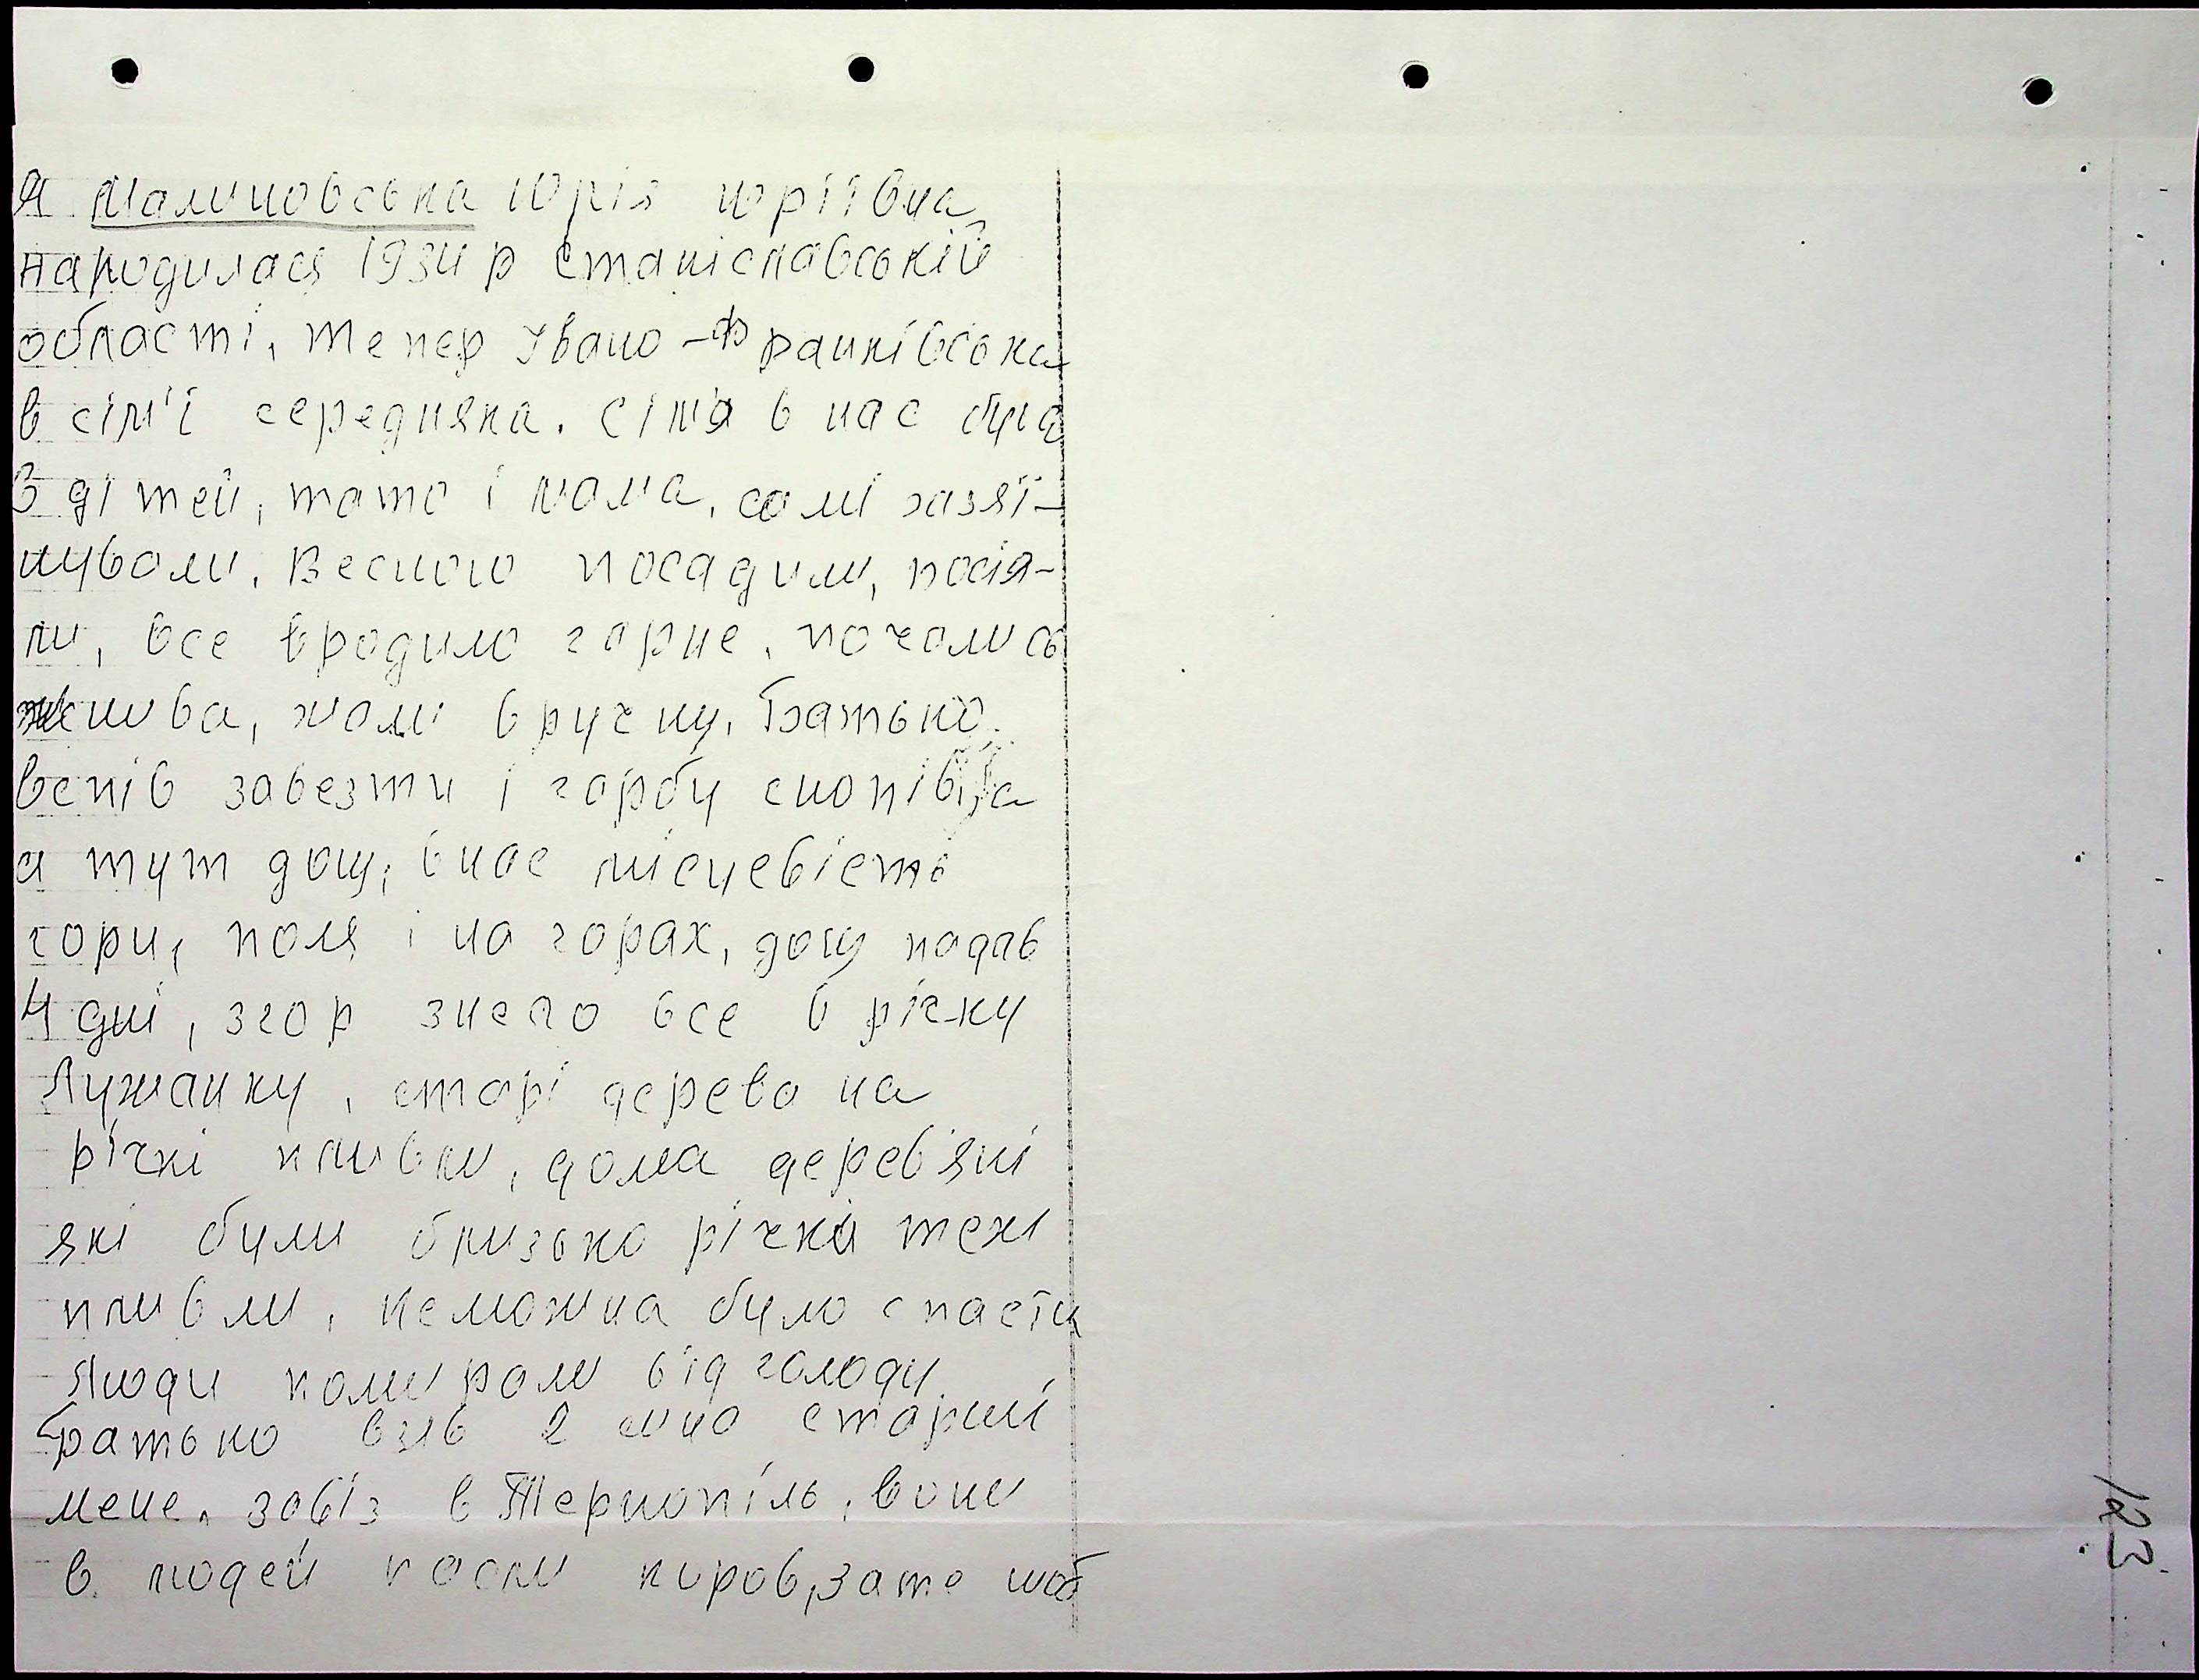 Я Малиновська Юрія Юріївна
народилася 1934 р Станіславській
області, тепер Івано-Франківська
в сім'ї середняка. Сім'я в нас була
3 дітей, тато і мама, самі хазяї-
нували. Весною посадили, посія-
ли, все вродило гарне, почались
жнива, жали вручну. Батько
вспів завезти 1 гарбу снопів,
а тут дощ, в нас місцевість
гори, поля і на горах, дощ падав
4 дні, згор знело все в річку
Лужанку, старі дерева на
річкі пливли, дома дерев'яні
які були близько річки тежі
пливли, неможна було спасти
Люди помирали від голоду
Батько взяв 2 старші
мене, завіз в Тернопіль, вони
в людей пасли киров, зате шоб
123